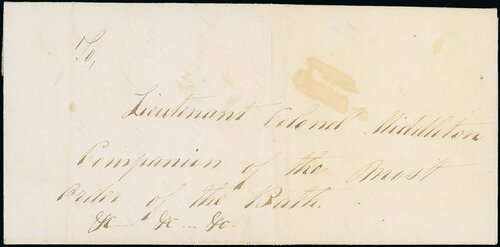 To,
Lieutenant Colonel Middleton
Companion of the Most
Order of the Bath.
&c... &c... &c.